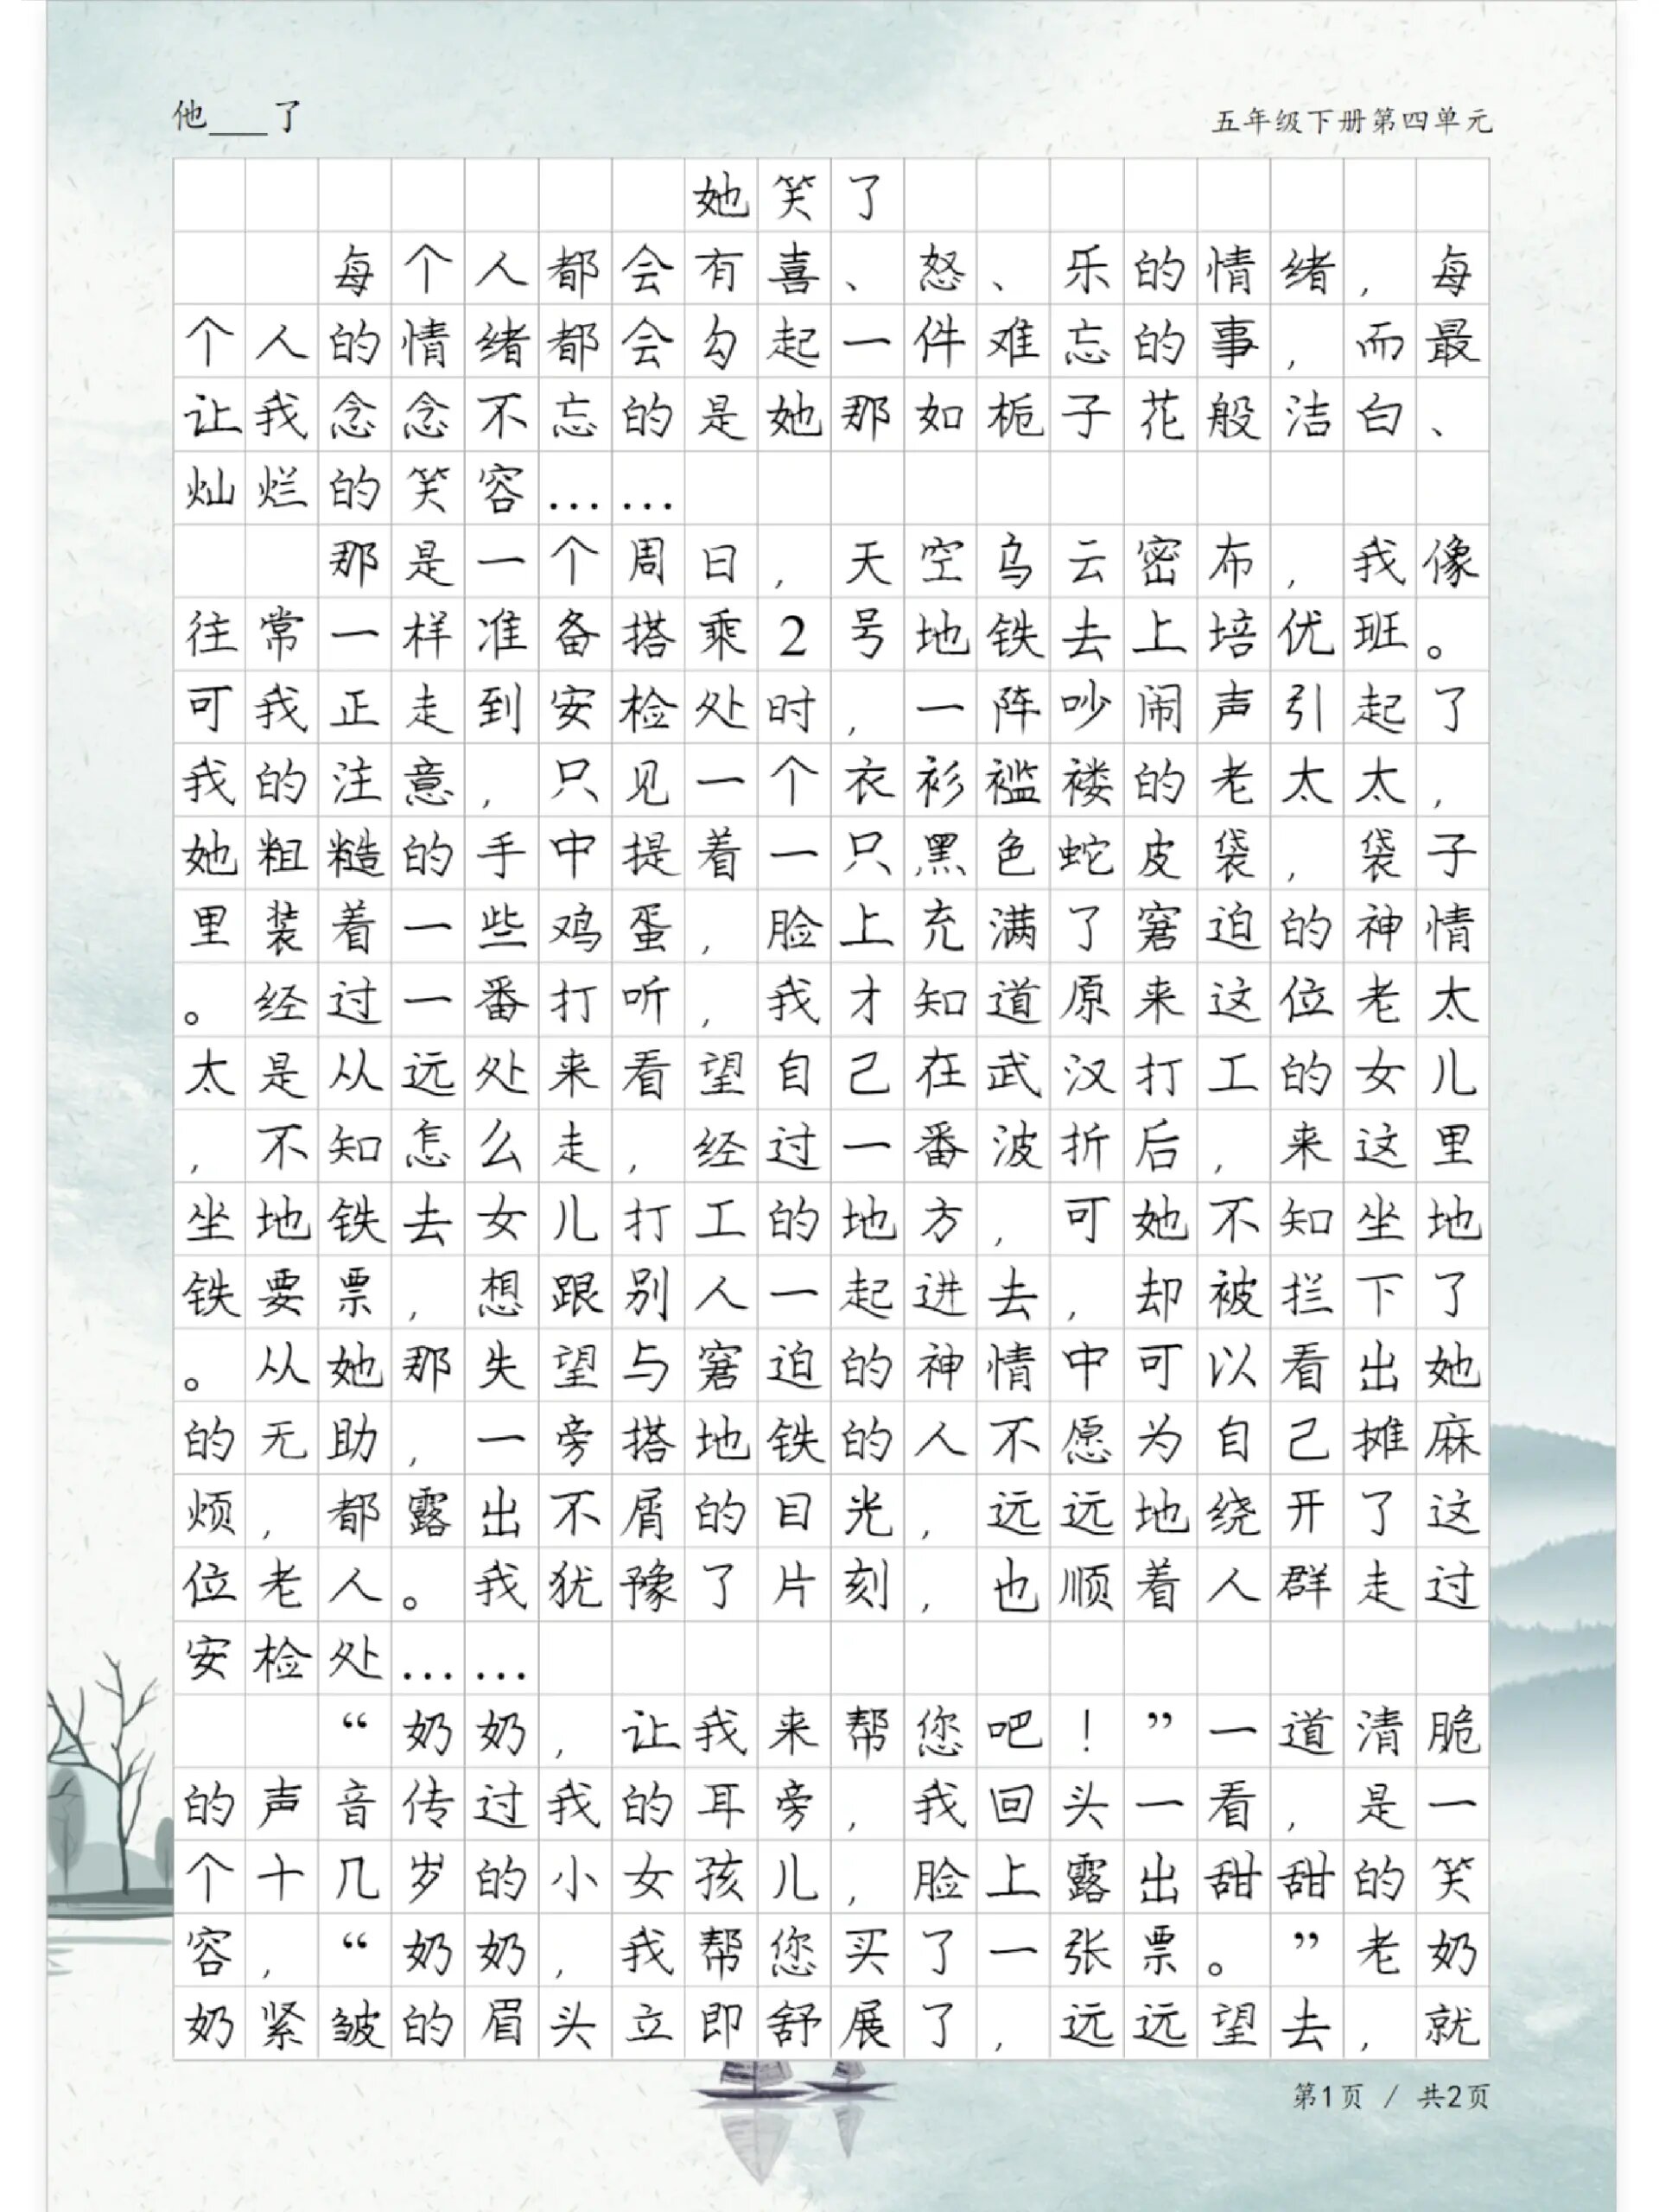 他___了
五年级下册第四单元
她笑了
每个人都会有喜、怒、乐的情绪，每
个人的情绪都会勾起一件难忘的事，而最
让我念念不忘的是她那如栀子花般洁白、
灿烂的笑容……
那是一个周日，天空乌云密布，我像
往常一样准备搭乘2号地铁去上培优班。
可我正走到安检处时，一阵吵闹声引起了
我的注意，只见一个衣衫褴褛的老太太，
她粗糙的手中提着一只黑色蛇皮袋，袋子
里装着一些鸡蛋，脸上充满了窘迫的神情
。经过一番打听，我才知道原来这位老太
太是从远处来看望自己在武汉打工的女儿
，不知怎么走，经过一番波折后，来这里
坐地铁去女儿打工的地方，可她不知坐地
铁要票，想跟别人一起进去，却被拦下了
。从她那失望与窘迫的神情中可以看出她
的无助，一旁搭地铁的人不愿为自己摊麻
烦，都露出不屑的目光，远远地绕开了这
位老人。我犹豫了片刻，也顺着人群走过
安检处……
“奶奶，让我来帮您吧！”一道清脆
的声音传过我的耳旁，我回头一看，是一
个十几岁的小女孩儿，脸上露出甜甜的笑
容，“奶奶，我帮您买了一张票。”老奶
奶紧皱的眉头立即舒展了，远远望去，就
第1页 / 共2页